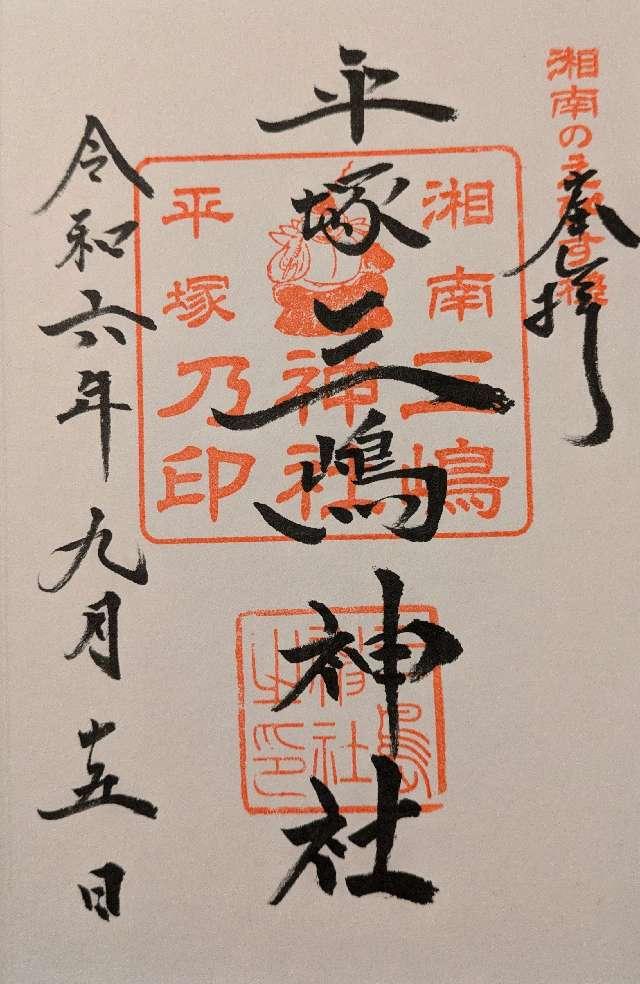 湘南の
奉拝
平塚三嶋神社
湘南三嶋
神社
平塚乃印
三島
神社
之印
令和六年九月十五日